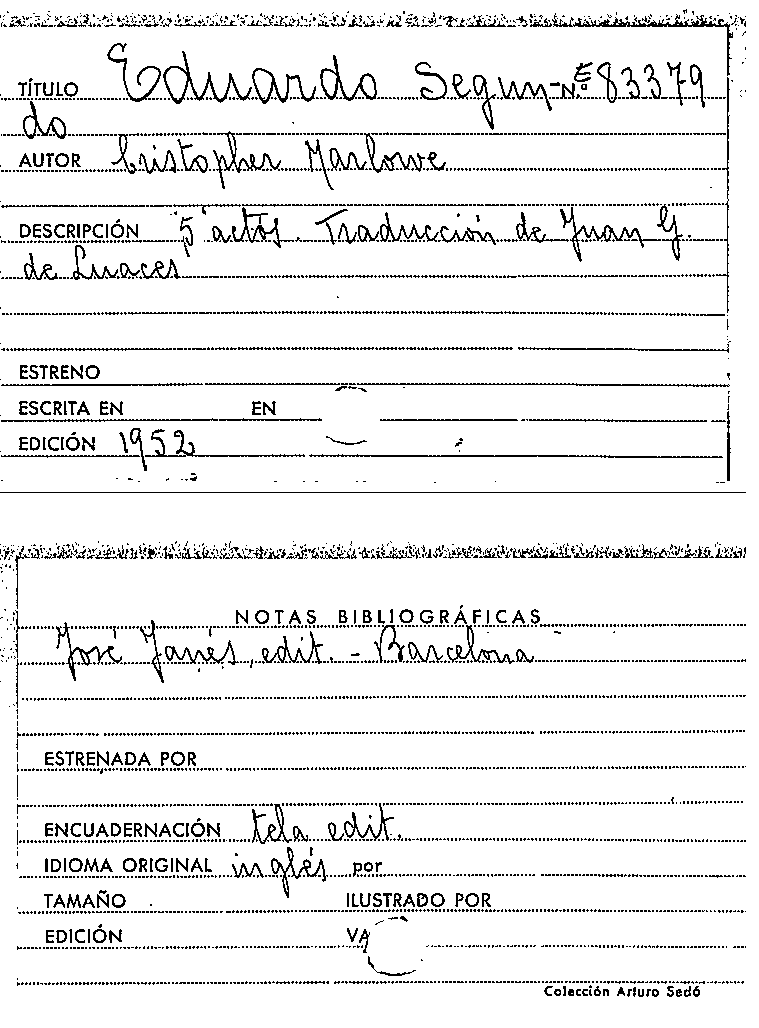 TÍTULO Eduardo Segun- N.º E 83379
do
AUTOR Cristopher Marlowe
DESCRIPCIÓN 5 actos. Traducción de Juan G.
de Luaces
ESTRENO
ESCRITA EN EN
EDICIÓN 1952
NOTAS BIBLIOGRÁFICAS
José Janés, edit. - Barcelona
ESTRENADA POR
ENCUADERNACIÓN tela edit.
IDIOMA ORIGINAL inglés por
TAMAÑO ILUSTRADO POR
EDICIÓN VA
Colección Arturo Sedó